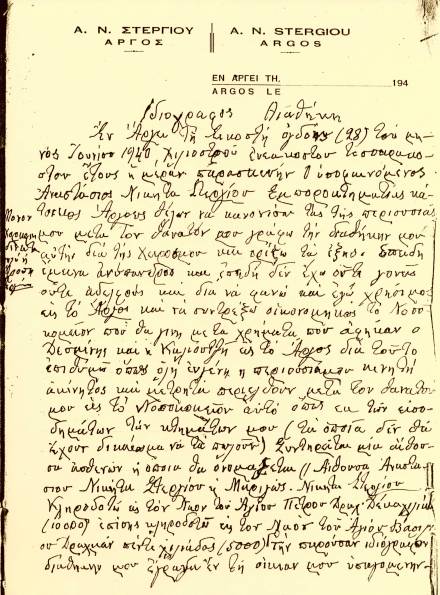 Α. Ν. ΣΤΕΡΓΙΟΥ
ΑΡΓΟΣ
A. N. STERGIOU
ARGOS
ΕΝ ΑΡΓΕΙ ΤΗ, 194
ARGOS LE
Ιδιόγραφος Διαθήκη
Εν Άργει τη εικοστή ογδόη (28) του μη-
νός Ιουνίου 1940 χιλιοστού ενεακοστού τεσσαρακο-
στού έτους ημέραν παρασκευήν Ο υποφαινόμενος
Αναστάσιος Νικήτα Στεργίου Εμποροκτηματίας κά-
τοικος Άργους θέλων να κανονίσω τας της περιουσίας
μου μετά τον θάνατόν μου γράφω την διαθήκην μου
αυτής διά της χειρός μου και ορίζω τα εξής: επειδή
έμεινα ανύπανδρος και επειδή δεν έχω ούτε γονείς
ούτε αδελφούς και διά να φανώ και εγώ χρήσιμος
εις το Άργος και να συντρέξω οικονομικώς το Νοσο-
κομείον που θα γίνη με τα χρήματα που άφησαν ο
Δεσμίνης και η εις το Άργος διά τούτο
επιθυμώ όπως όλη εν γένει η περιουσία μου κινητή
ακίνητος και μετρητά περιέλθουν μετά τον θάνατό
μου εις το Νοσοκομείον αυτό όπως εκ των εισο-
δημάτων των κτημάτων μου (τα οποία δεν θα
έχουν δικαίωμα να τα πωλούν) Συντηρήται μία αίθου-
σα ασθενών η οποία θα ονομάζεται (Αίθουσα Αναστα-
σίου Νικήτα Στεργίου ή Μαριγώς Νικήτα Στεργίου
Κληροδοτώ εις τον Ναόν του Αγίου Πέτρου Δραχ. Δέκα χιλιάδ
(10000) επίσης κληροδοτώ εις τον Ναόν του Αγίου Βασιλεί-
ου Δραχμάς πέντε χιλιάδας (5000) την παρούσαν ιδιόγραφον
διαθήκην μου έγραψα εν τη οικία μου